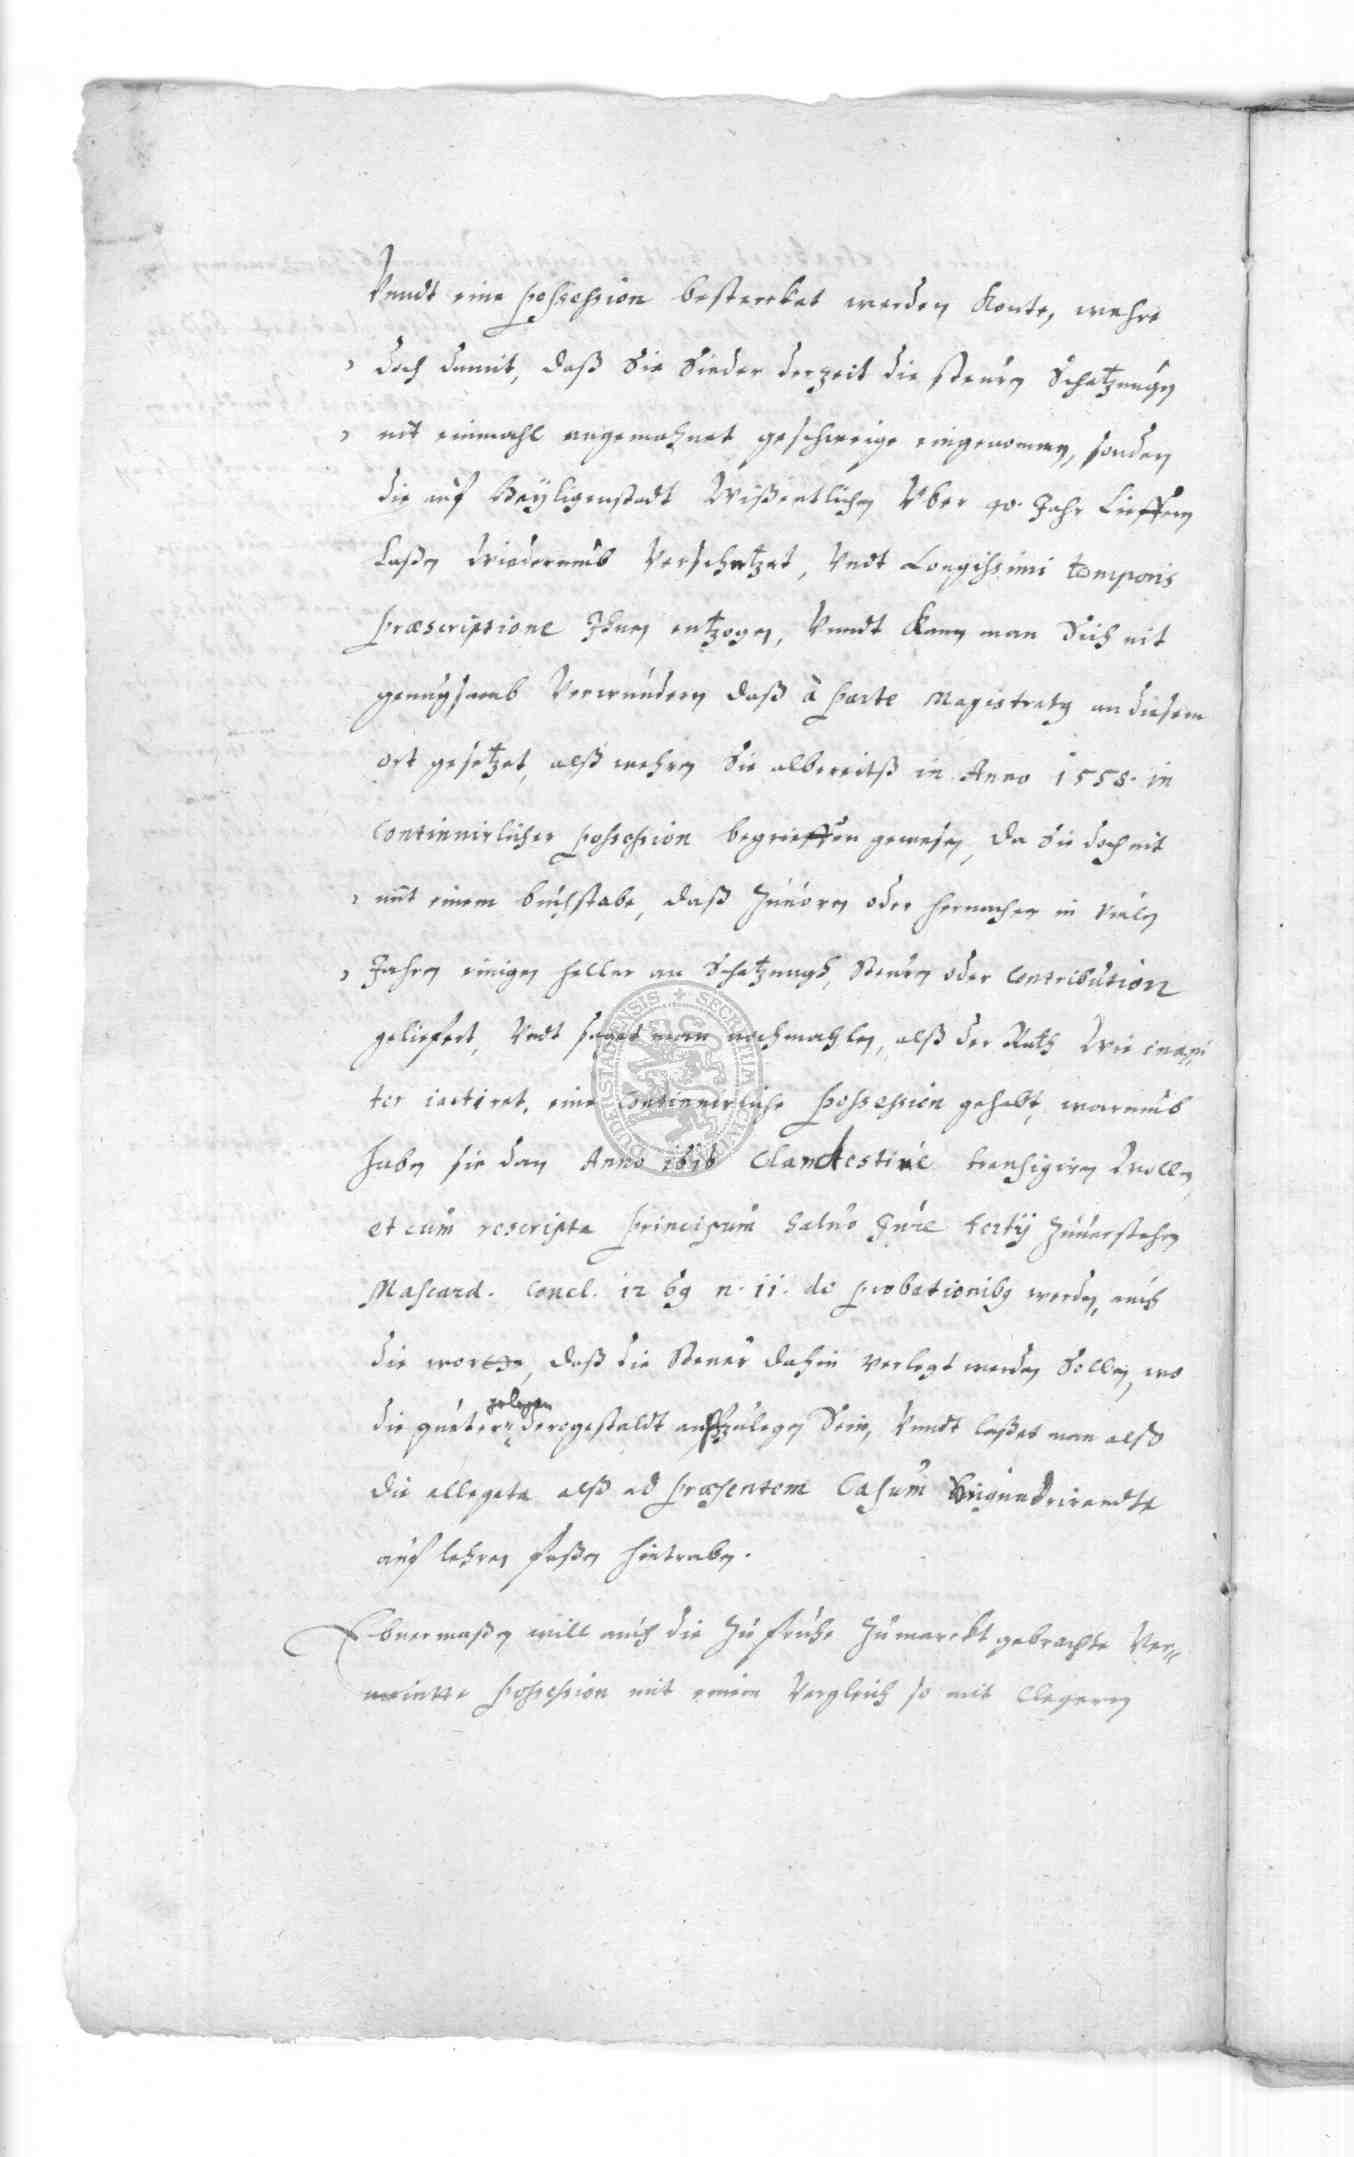 Vnndt eine possession bestercket werden konte, wehre
doch damit, daß Sie Sieder der zeit die steurn Schatzungn
nit einmahl angemahnet geschweige eingenommen, sondern
die auf Heyligenstadt Wißentlichen Vber 40. Jahr Lieffern
Laßen Wiederumb Verschatzet, Vndt Longissimi temporis
præscriptione Ihnen entzogen, Vnndt kann man Sich nit
genugsamb Verwundern daß à parte Magistratus an diesem
ort gesetzet, alß wehren Sie albereitß in Anno 1558. in
continuirlicher possession begrieffen gewesen, da Sie doch nit
mit einem buchstabe, daß Zuuorn oder hernacher in Vielen
Jahren einigen heller an Schatzungs, Steurn oder Contribution
geliefert, Vndt saget man nochmahlen, alß der Rath Wie inani
ter iactiret, eine Continuirliche possession gehabt, warumb
haben sie dan Anno 1676 Clandestine transigiren Wollen,
et cum rescripta principum salvo Jure tertij Zuuerstehen
Mascard. Concl. n. 11. de probationibus werden, auch
die wortte, daß die Steuer dahin verlegt werden Sollen, wo
die gueter gelegen derogestaldt außzulegen Sein, Vnndt laßet man alß
die allegata alß ad præsentem Casum
auf lehren faßen hintraben.
Ebnermaßen will auch die Zu fruhe Zu marckt gebrachte Ver-
meintte possession mit einem Vergleich so mit Clegern
SECRETUM CIVIUM DUDERSTADENSIS